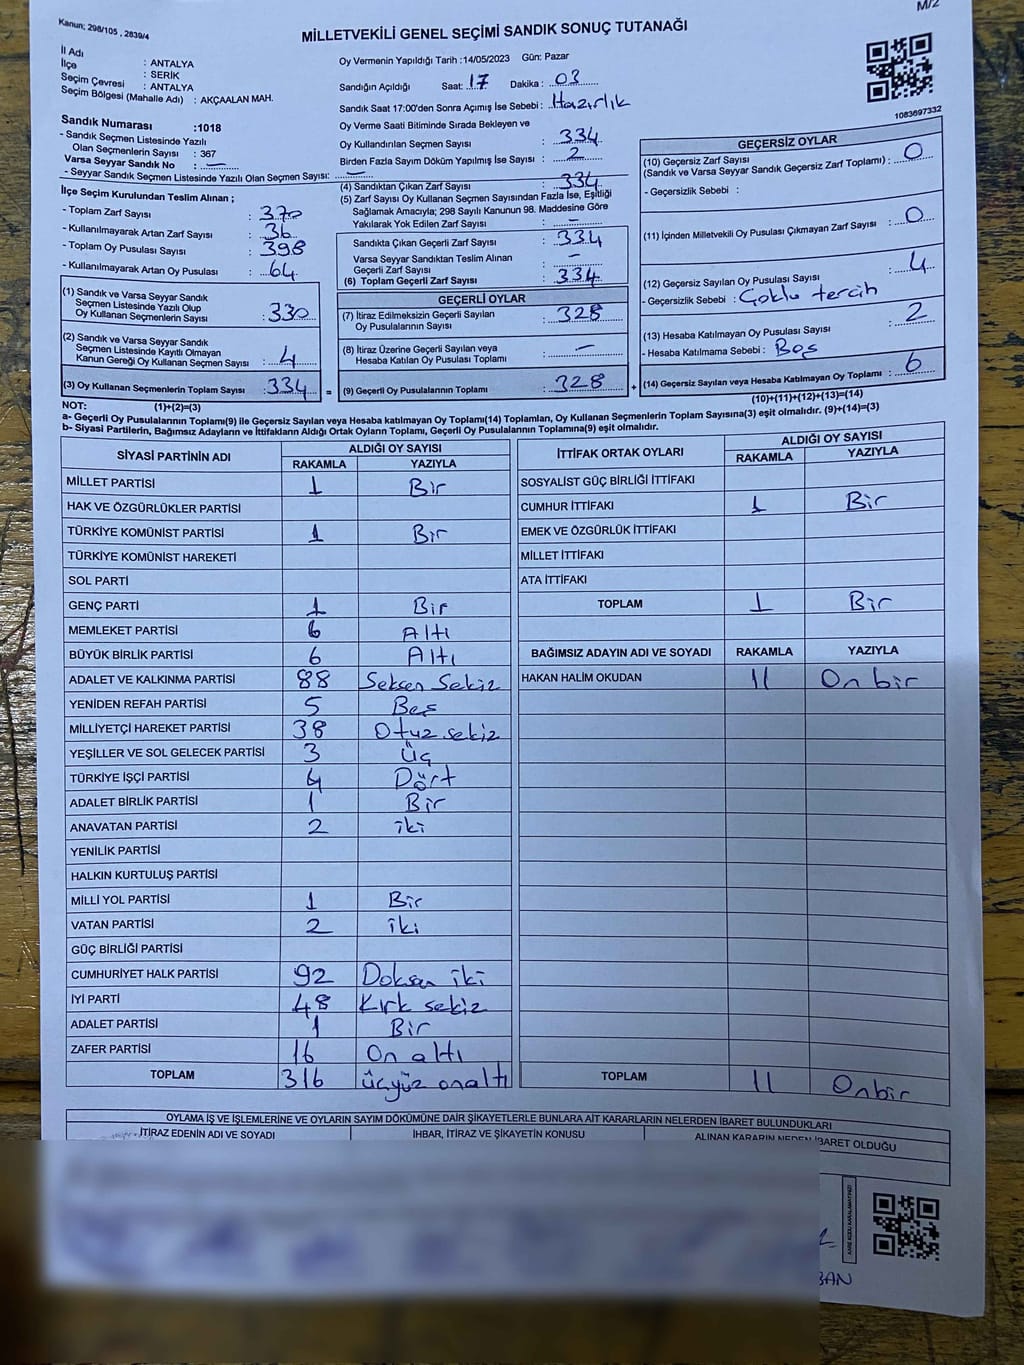 M/2
Kanun; 298/105 , 2839/4
MİLLETVEKİLİ GENEL SEÇİMİ SANDIK SONUÇ TUTANAĞI
İl Adı : ANTALYA
İlçe : SERİK
Seçim Çevresi : ANTALYA
Seçim Bölgesi (Mahalle Adı) : AKÇAALAN MAH.
Sandık Numarası :1018
- Sandık Seçmen Listesinde Yazılı
Olan Seçmenlerin Sayısı : 367
Varsa Seyyar Sandık No : —
- Seyyar Sandık Seçmen Listesinde Yazılı Olan Seçmen Sayısı: —
İlçe Seçim Kurulundan Teslim Alınan ;
- Toplam Zarf Sayısı : 370
- Kullanılmayarak Artan Zarf Sayısı : 36
- Toplam Oy Pusulası Sayısı : 398
- Kullanılmayarak Artan Oy Pusulası : 64
(1) Sandık ve Varsa Seyyar Sandık
Seçmen Listesinde Yazılı Olup
Oy Kullanan Seçmenlerin Sayısı : 330
(2) Sandık ve Varsa Seyyar Sandık
Seçmen Listesinde Kayıtlı Olmayan
Kanun Gereği Oy Kullanan Seçmen Sayısı : 4
(3) Oy Kullanan Seçmenlerin Toplam Sayısı : 334 =
Oy Vermenin Yapıldığı Tarih :14/05/2023 Gün: Pazar
Sandığın Açıldığı Saat: 17 Dakika : 03
Sandık Saat 17:00'den Sonra Açımış İse Sebebi : Hazırlık
Oy Verme Saati Bitiminde Sırada Bekleyen ve
Oy Kullandırılan Seçmen Sayısı : 334
Birden Fazla Sayım Döküm Yapılmış İse Sayısı : 2
(4) Sandıktan Çıkan Zarf Sayısı : 334
(5) Zarf Sayısı Oy Kullanan Seçmen Sayısından Fazla İse, Eşitliği
Sağlamak Amacıyla; 298 Sayılı Kanunun 98. Maddesine Göre
Yakılarak Yok Edilen Zarf Sayısı :
Sandıkta Çıkan Geçerli Zarf Sayısı : 334
Varsa Seyyar Sandıktan Teslim Alınan
Geçerli Zarf Sayısı : —
(6) Toplam Geçerli Zarf Sayısı : 334
GEÇERLİ OYLAR
(7) İtiraz Edilmeksizin Geçerli Sayılan
Oy Pusulalarının Sayısı : 328
(8) İtiraz Üzerine Geçerli Sayılan veya
Hesaba Katılan Oy Pusulası Toplamı : —
(9) Geçerli Oy Pusulalarının Toplamı : 328 +
1083697332
GEÇERSİZ OYLAR
(10) Geçersiz Zarf Sayısı
(Sandık ve Varsa Seyyar Sandık Geçersiz Zarf Toplamı) : 0
- Geçersizlik Sebebi :
(11) İçinden Milletvekili Oy Pusulası Çıkmayan Zarf Sayısı : 0
(12) Geçersiz Sayılan Oy Pusulası Sayısı : 4
- Geçersizlik Sebebi : Çoklu tercih
(13) Hesaba Katılmayan Oy Pusulası Sayısı : 2
- Hesaba Katılmama Sebebi : Boş
(14) Geçersiz Sayılan veya Hesaba Katılmayan Oy Toplamı : 6
(10)+(11)+(12)+(13)=(14)
NOT: (1)+(2)=(3)
a- Geçerli Oy Pusulalarının Toplamı(9) ile Geçersiz Sayılan veya Hesaba katılmayan Oy Toplamı(14) Toplamları, Oy Kullanan Seçmenlerin Toplam Sayısına(3) eşit olmalıdır. (9)+(14)=(3)
b- Siyasi Partilerin, Bağımsız Adayların ve İttifakların Aldığı Ortak Oyların Toplamı, Geçerli Oy Pusulalarının Toplamına(9) eşit olmalıdır.
SİYASİ PARTİNİN ADI ALDIĞI OY SAYISI
RAKAMLA YAZIYLA
MİLLET PARTİSİ 1 Bir
HAK VE ÖZGÜRLÜKLER PARTİSİ
TÜRKİYE KOMÜNİST PARTİSİ 1 Bir
TÜRKİYE KOMÜNİST HAREKETİ
SOL PARTİ
GENÇ PARTİ 1 Bir
MEMLEKET PARTİSİ 6 Altı
BÜYÜK BİRLİK PARTİSİ 6 Altı
ADALET VE KALKINMA PARTİSİ 88 Seksen Sekiz
YENİDEN REFAH PARTİSİ 5 Beş
MİLLİYETÇİ HAREKET PARTİSİ 38 Otuz sekiz
YEŞİLLER VE SOL GELECEK PARTİSİ 3 Üç
TÜRKİYE İŞÇİ PARTİSİ 4 Dört
ADALET BİRLİK PARTİSİ 1 Bir
ANAVATAN PARTİSİ 2 iki
YENİLİK PARTİSİ
HALKIN KURTULUŞ PARTİSİ
MİLLİ YOL PARTİSİ 1 Bir
VATAN PARTİSİ 2 iki
GÜÇ BİRLİĞİ PARTİSİ
CUMHURİYET HALK PARTİSİ 92 Doksan iki
İYİ PARTİ 48 Kırk sekiz
ADALET PARTİSİ 1 Bir
ZAFER PARTİSİ 16 On altı
TOPLAM 316 üçyüz onaltı
İTTİFAK ORTAK OYLARI ALDIĞI OY SAYISI
RAKAMLA YAZIYLA
SOSYALİST GÜÇ BİRLİĞİ İTTİFAKI
CUMHUR İTTİFAKI 1 Bir
EMEK VE ÖZGÜRLÜK İTTİFAKI
MİLLET İTTİFAKI
ATA İTTİFAKI
TOPLAM 1 Bir
BAĞIMSIZ ADAYIN ADI VE SOYADI RAKAMLA YAZIYLA
HAKAN HALİM OKUDAN 11 On bir
TOPLAM 11 Onbir
OYLAMA İŞ VE İŞLEMLERİNE VE OYLARIN SAYIM DÖKÜMÜNE DAİR ŞİKAYETLERLE BUNLARA AİT KARARLARIN NELERDEN İBARET BULUNDUKLARI
İTİRAZ EDENİN ADI VE SOYADI İHBAR, İTİRAZ VE ŞİKAYETİN KONUSU ALINAN KARARIN NEDEN İBARET OLDUĞU
KARE KODU KARALAMAYINIZ!